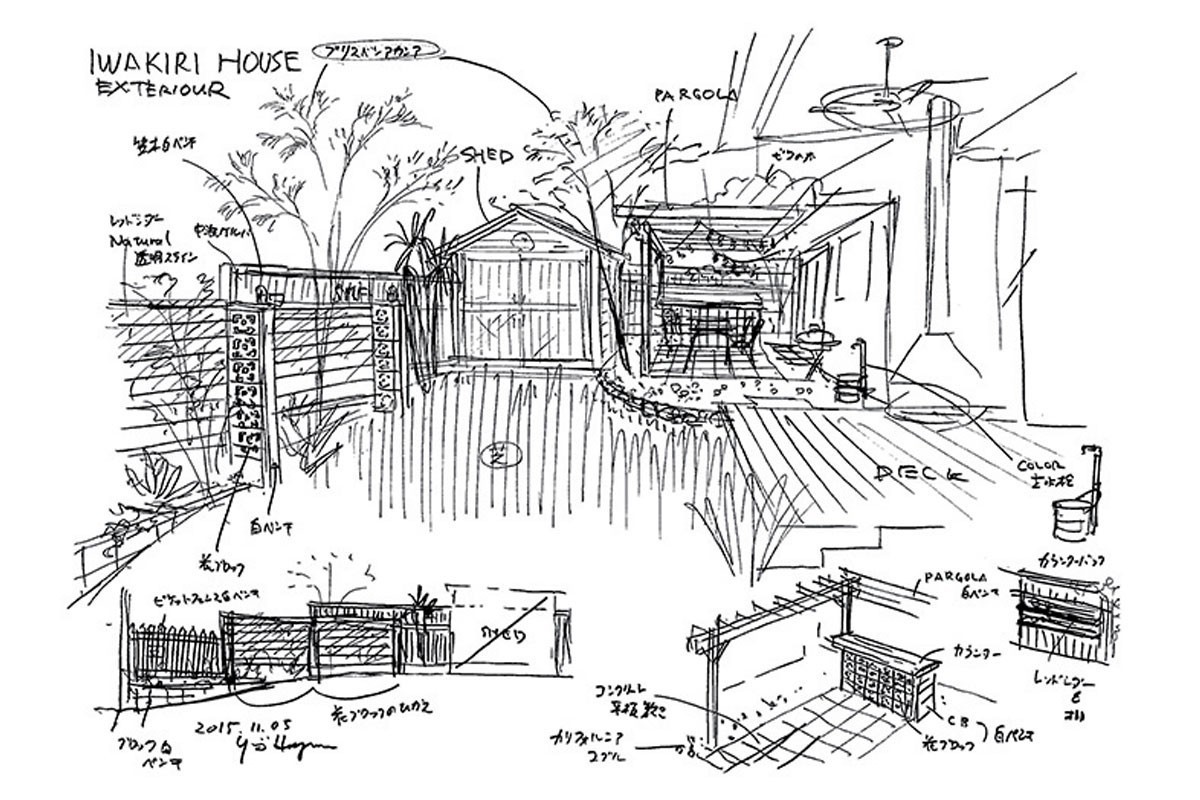 IWAKIRI HOUSE
EXTERIOUR
ブリスベンアカシア
PARGOLA
笠木白ペンキ
SHED
ビワの木
レッドシダー
Natural
透明ステイン
SHELF
芝
DECK
COLOR
立水栓
白ペンキ
花ブロック
カウンターバック
ピケットフェンス白ペンキ
PARGOLA
白ペンキ
SHED
カウンター
レッドシダー
コンクリート
平板敷き
CB
花ブロック
白ペンキ
花ブロックのひかえ
2015.11.05
カリフォルニア
コブル
ブロック白
ペンキ